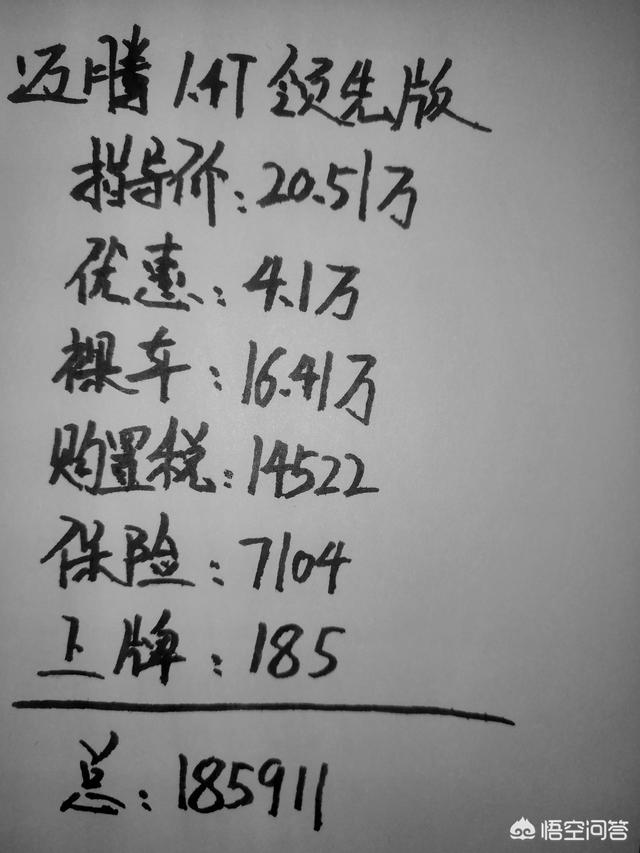 迈腾 1.4T 领先版
指导价：20.51万
优惠：4.1万
裸车：16.41万
购置税：14522
保险：7104
上牌：185
总：185911
悟空问答